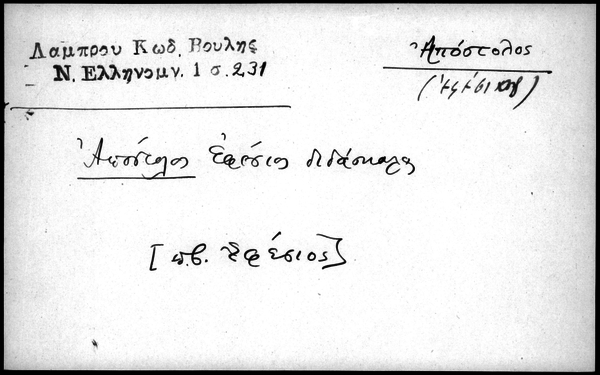 Λαμπρου Κωδ. Βουλης
Ν. Ελληνομν. 1 σ. 231
Ἀπόστολος
Ἀπόστολος Ἐφέσιος διδάσκαλος
[π.β. Ἐφέσιος]